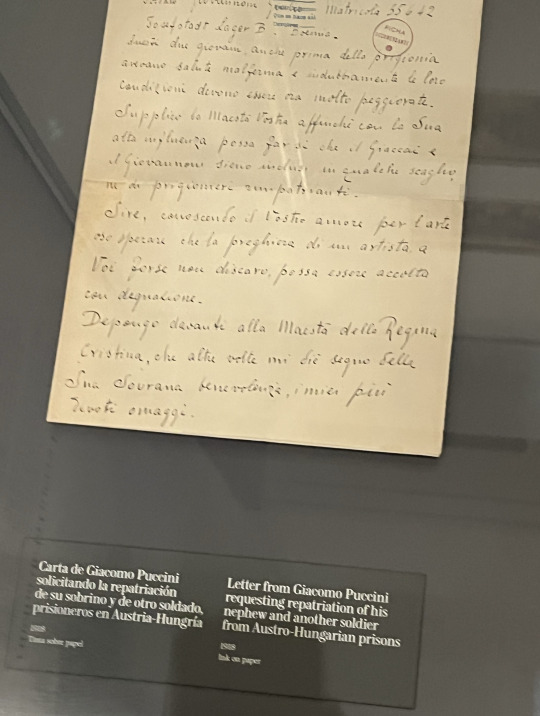 Matricola 35642
Lager B.
Questi due giovani, anche prima della prigionia
avevano salute malferma e indubbiamente le loro
condizioni devono essere ora molto peggiorate.
Supplico la Maestà Vostra affinchè con la Sua
alta influenza possa far sì che il Graccai e
il Giovannoni sieno inclusi in qualche scaglio,
ne di prigionieri rimpatrianti.
Sire, conoscendo il Vostro amore per l'arte
oso sperare che la preghiera di un artista, a
Voi forse non discaro, possa essere accolta
con degnazione.
Depongo davanti alla Maestà della Regina
Cristina, che altre volte mi diè segno della
Sua Sovrana benevolenza, i miei più
devoti omaggi.
Carta de Giacomo Puccini
solicitando la repatriación
de su sobrino y de otro soldado,
prisioneros en Austria-Hungría
1918
Tinta sobre papel
Letter from Giacomo Puccini
requesting repatriation of his
nephew and another soldier
from Austro-Hungarian prisons
1918
Ink on paper